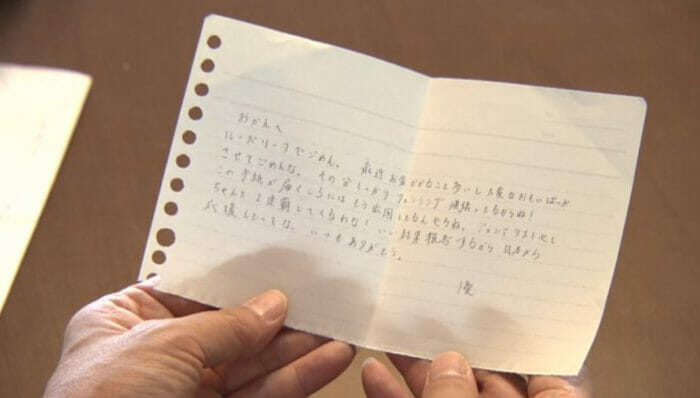 おかんへ
ルーズリーフでごめん。最近お金がかかること多いし大変なおもいばっか
させてごめんな。その分しっかりフェンシング頑張ってるからね!
この手紙が届くころにはもう出国しとるんやろね。
ちゃんと2連覇してくるわな!いい結果報告するから日本から
応援しとってな。いつもありがとう。
優